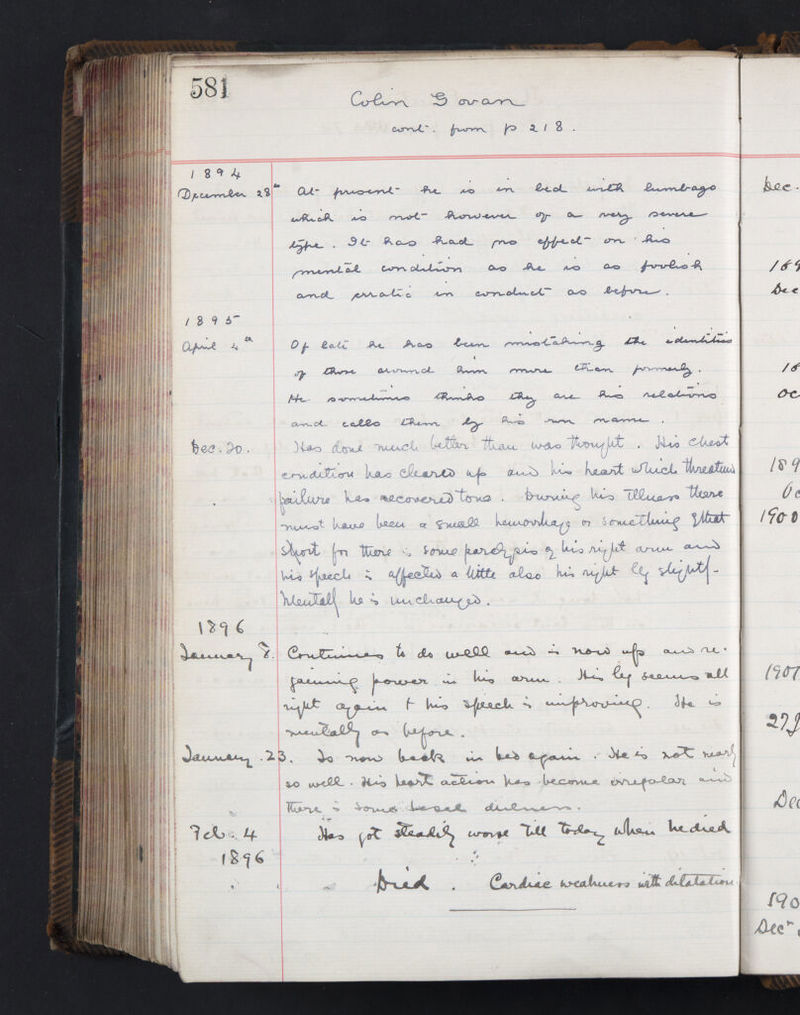 581
Colin Govan
cont. from p 218.
1894
December 28th At present he is in bed with lumbago
which is not however of a very severe
type. It has had no effect on his
mental condition as he is as foolish
and erratic in conduct as before.
1895
April 4th Of late he has been mistaking the identities
of those around him more than formerly.
He sometimes thinks they are his relations
and calls them by his own name.
Dec. 20. Has done much better than was thought. His chest
condition has cleared up and his heart which threatened
failure has recovered tone. During his illness there
must have been a small hemorrhage or something of that
sort for there is some paralysis of his right arm and
his speech is affected a little also his right leg slightly.
Mentally he is unchanged.
1896
January 8. Continues to do well and is now up and re-
gaining power in his arm. His leg seems all
right again & his speech is improving. He is
mentally as before.
January. 23. Is now back in bed again. He is not nearly
so well. His heart action has become irregular and
there is some basal dulness.
Feb. 4 Has got steadily worse till today when he died
1896
Died. Cardiac weakness with dilatation
Dec.
189
Dec
18
Oc
189
Oc
1900
1901
27
Dec
190
Decr